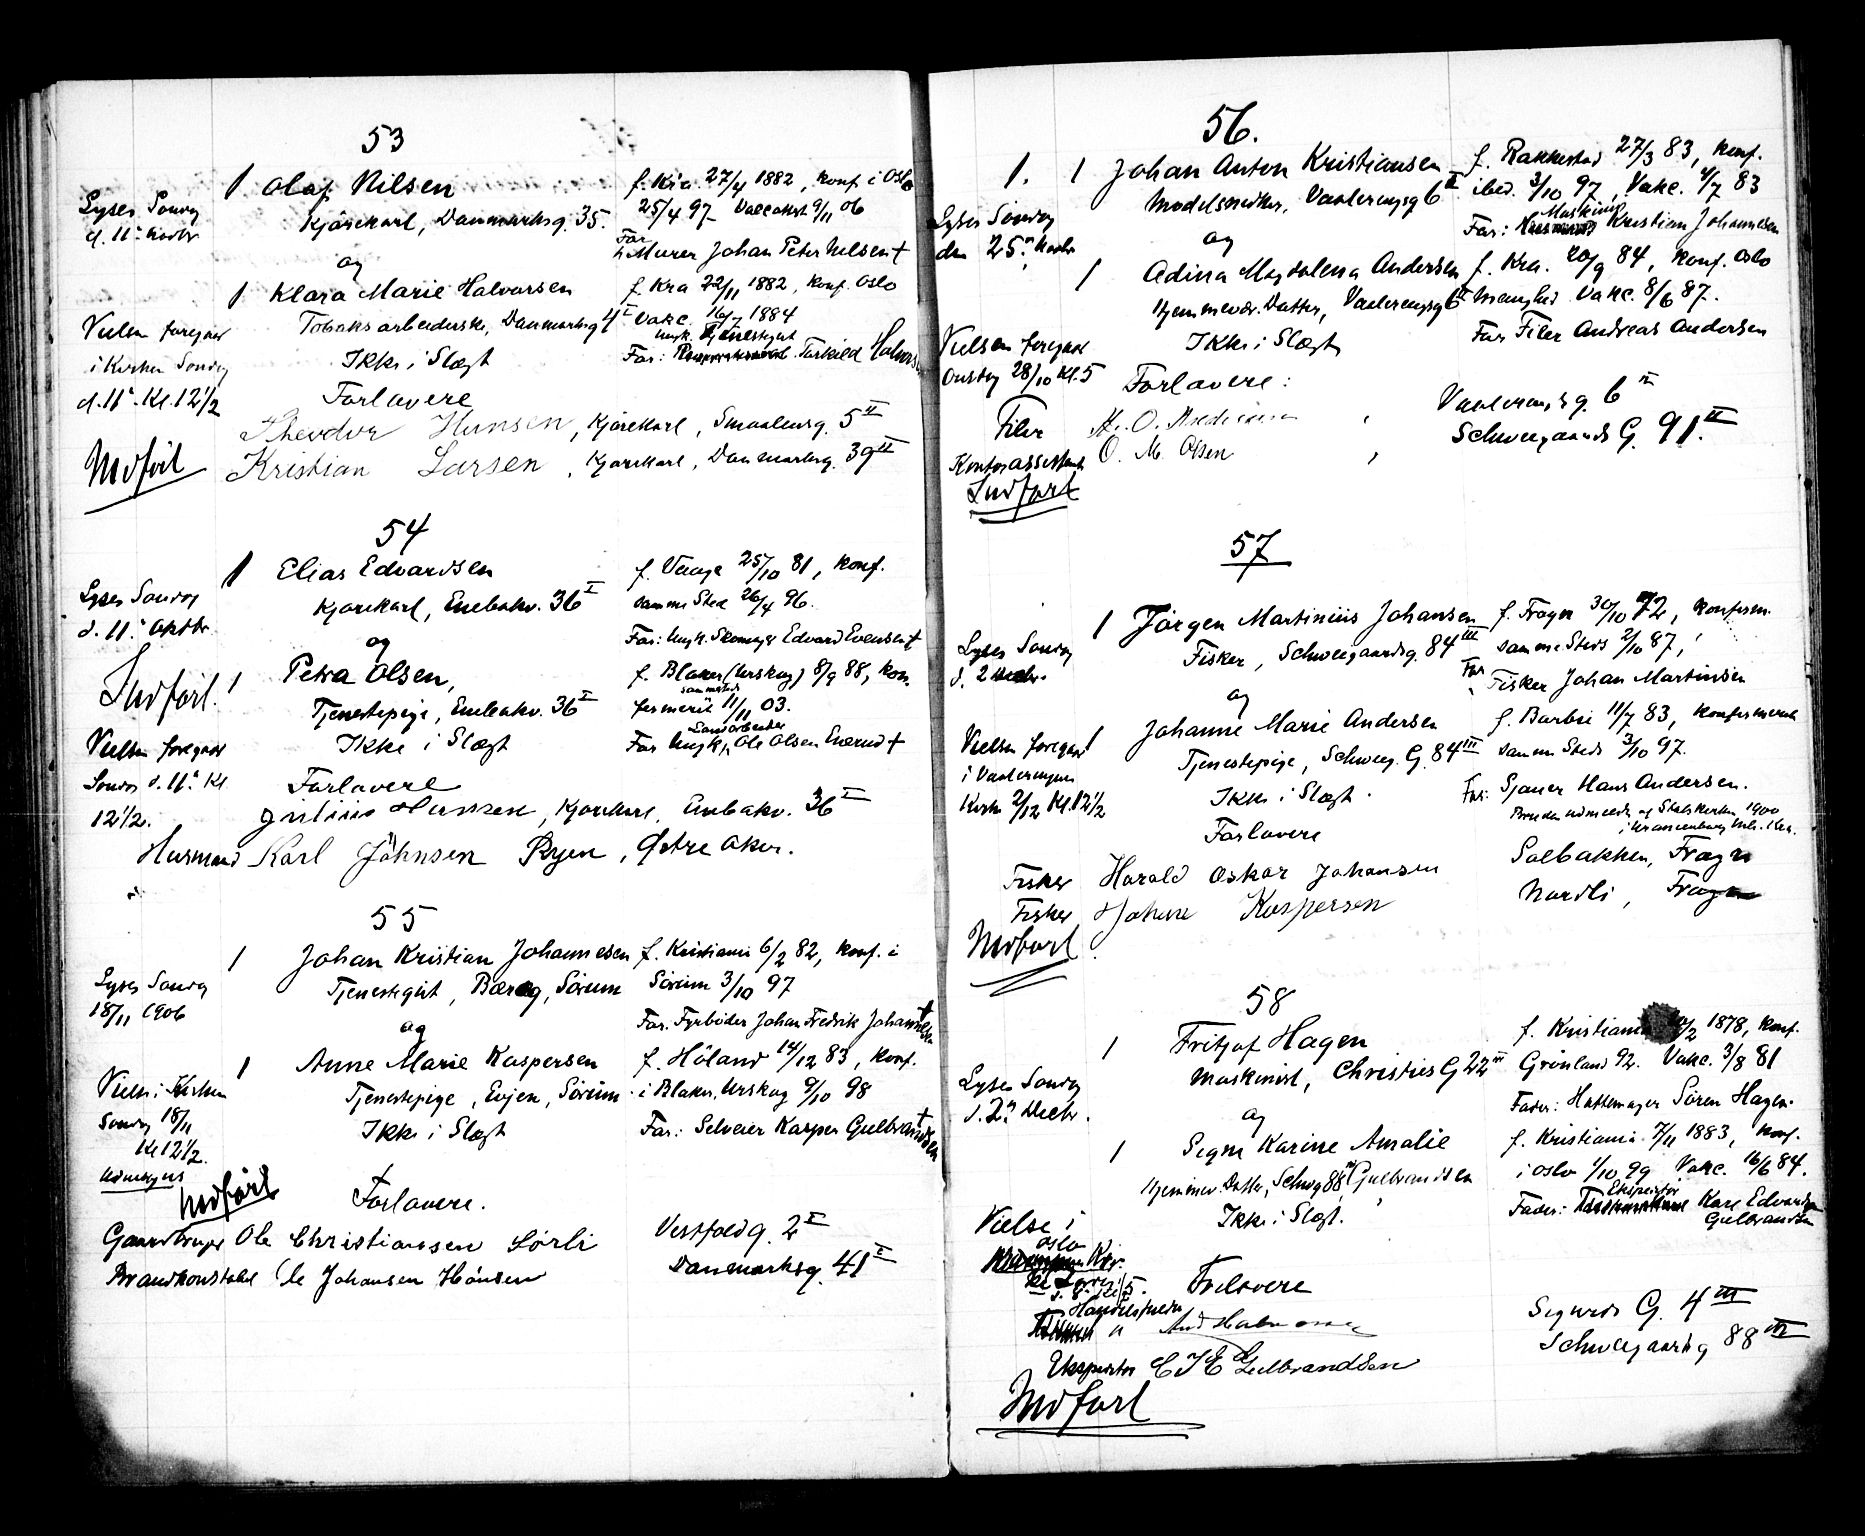 53
1 Olaf Nilsen
f. Kra 27/4 1882, konf. i Oslo
Lyses Søndag
d. 11te
Kjørekarl, Danmarksg. 35.
25/4 97 9/11 06
Far
Murer Johan Peter Nilsen †
og
1 Klara Marie Halvorsen
f. Kra 22/11 1882, konf. Oslo
Tobaksarbeiderske, Danmarksg 4 I
Vakc. 16/7 1884
Vielsen foregaar
i Kirken Søndag
d. 11te Kl. 12 1/2
Ikke i Slægt
ungk. Tjenestegut
Far: Torkild Halvorsen
Forlovere
Theodor Hansen, Kjørekarl, Smaalensg. 5 II
Kristian Larsen, Kjørekarl, Danmarksg. 39 II
Indført
54
1 Elias Edvardsen
f. 25/10 81, konf.
Lyses Søndag
d. 11te
Kjørekarl, Enebakv. 36 I
samme Sted 26/4 96.
og
Far: ungk. Skomager Edvard Evensen †
Indført. 1
Petra Olsen,
f. Blaker (Urskog) 8/9 88, kon-
sammesteds
Tjenestepige, Enebakv. 36 I
fermert 11/11 03.
Landarbeider
Vielsen foregaar
Ikke i Slægt
Far Ungk. Ole Olsen †
Søndag d. 11te Kl.
12 1/2.
Forlovere
Julius Hansen, Kjørekarl, Enebakv. 36 I
Husmand Karl Johnsen Ryen, Østre Aker.
55
1 Johan Kristian Johannesen
f. Kristiania 6/2 82, konf. i
Lyses Søndag
18/11 1906
Tjenestegut, Sørum
Sørum 3/10 97
og
Far: Fyrbøder Johan Fredrik Johannesen †
1 Anne Marie Kaspersen
f. Høland 14/12 83, konf.
Vielse i Kirken
Søndag 18/11
Kl 12 1/2.
Tjenestepige, Evjen, Sørum
i Blaker, Urskog 9/10 98
Ikke i Slægt
Far: Selveier Kasper Gulbrandsen †
Indført
Forlovere.
Ole Christiansen Sørli
Vestfoldg. 2 I
Brandkonstabel Ole Johansen Hansen
Danmarksg. 41 I
56.
1. 1 Johan Anton Kristiansen
f. Rakkestad 27/3 83, konf.
Lyses Søndag
den 25de Novbr
Modelsnedker, Vaalerengg 6 II
ibed. 3/10 97, Vakc. 4/7 83
Maskinist
Far: Kristian Johannesen
og
1 Adina Magdalena Andersen
f. Kra. 20/9 84, konf. Oslo
Hjemmevær. Datter, Vaalerengg 6 II
menighed. Vakc. 8/6 87.
Vielsen foregaar
Onsdag 28/10 Kl. 5
Ikke i Slægt
Far Filer Andreas Andersen
Forlovere:
Filer
Vaalerengg. 6 II
Kontorassistent O. M. Olsen
Schweigaards G. 91. II
Indført
57
1 Jørgen Martinius Johansen
f. Frogn 30/10 72, konferm.
Lyses Søndag
d. 2 Decbr.
Fisker, Schweigaardsg. 84 III
samme Steds 2/10 87,
Far
Fisker Johan Martinsen
og
Johanne Marie Andersen
f. Borbri 11/7 83, konfermeret
Vielsen foregaar 1
i Vaalerengen
Kirke 2/12 Kl. 12 1/2
Tjenestepige, Schweig. G. 84 III
samme Steds 3/10 97.
Ikke i Slægt.
Far: Sjauer Hans Andersen.
Bruden udmeldt af Statskirken 1900
Forlovere
Fisker Harald Oskar Johansen
Solbakken, Frogn
Fisker Johan Kaspersen
Nordli, Frogn
Indført
58
1 Fritjof Hagen
f. Kristiania /2 1878, konf.
Lyses Søndag
d. 2den Decbr.
Maskinist, Christies G 22 III
Grønland 92. Vakc. 3/8 81
og
Fader: Hattemager Søren Hagen.
1 Signe Karine Amalie
f. Kristiania 7/11 1883, konf.
Hjemmev. Datter, Schwg 88 III Gulbrandsen
i Oslo 1/10 99 Vakc. 16/6 84.
Vielse i
Oslo
Ikke i Slægt.
Ekspeditør
Fader: Karl Edvardsen
Gulbrandsen
Forlovere
Sigurds G. 4 III
Ekspeditør C J E Gulbrandsen
Schweigaardsg 88 III
Indført